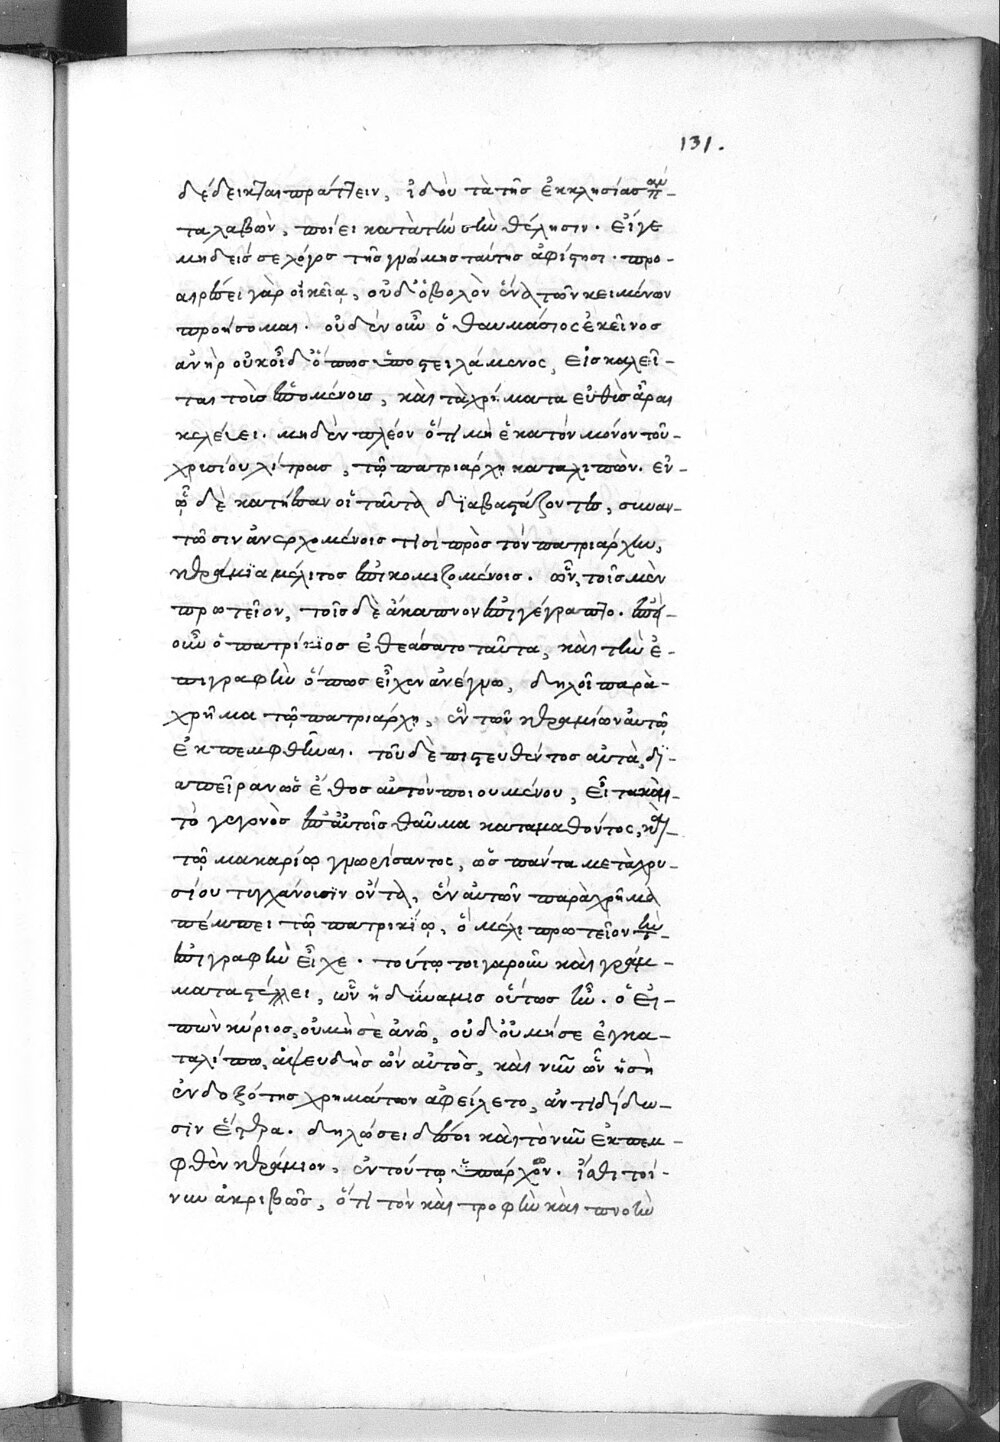 131.
δέδεικται πράττειν, ἰδοὺ τὰ τῆς ἐκκλησίας αὐ-
τὰ λαβὼν, ποίει κατὰ τὴν σὴν θέλησιν. εἴγε
μηδεὶς σε λόγος τῆς γνώμης ταύτης ἀφίστησι. προ-
αιρέσει γὰρ οἰκεῖα, οὐδ' ὀβολὸν ἕνα τῶν κειμένων
προήσομαι. οὐδὲν οὖν ὁ θαυμάσιος ἐκεῖνος
ἀνὴρ οὐκ οἶδ' ὅπως ὑποστειλάμενος, εἰσκαλεῖ-
ται τοῖς ἑπομένοις, καὶ τὰ χρήματα εὐθὺς ἆραι
κελεύει. μηδὲν πλέον ὅτι μὴ ἑκατὸν μόνον τοῦ
χρυσίου λίτρας, τῷ πατριάρχῃ καταλιπών. ἐν
ᾧ δὲ κατῄεσαν οἱ ταῦτα διαβαστάζοντες, συναν-
τῶσιν ἀνερχομένοις τισὶ πρὸς τὸν πατριάρχην,
κεράμια μέλιτος ἐπικομιζομένοις. ὧν, τοῖς μὲν
πρωτεῖον, τοῖς δὲ ἄκαπνον ἐπιγέγραπτο. ἐπεὶ
οὖν ὁ πατρίκιος ἐθεάσατο ταῦτα, καὶ τὴν ἐ-
πιγραφὴν ὅπως εἶχεν ἀνέγνω, δηλοῖ παρα-
χρῆμα τῷ πατριάρχῃ, ἓν τῶν κεραμίων αὐτῷ
ἐκπεμφθῆναι. τοῦ δὲ πιστευθέντος αὐτὰ, δι-
ὰ πεῖραν ὡς ἔθος αὐτὸν ποιουμένου, εἶτα καὶ
τὸ γεγονὸς ἐπ' αὐτοῖς θαῦμα καταμαθόντος, καὶ
τῷ μακαρίῳ γνωρίσαντος, ὡς πάντα μετὰ χρυ-
σίου τυγχάνουσιν ὄντα, ἓν αὐτῶν παραχρῆμα
πέμπει τῷ πατρικίῳ, ὃ μέλι πρωτεῖον τὴν
ἐπιγραφὴν εἶχε. τούτῳ τοιγαροῦν καὶ γράμ-
ματα στέλλει, ὧν ἡ δύναμις οὕτως ἦν. ὁ εἰ-
πὼν κύριος, οὐ μή σε ἀνῶ, οὐδ' οὐ μή σε ἐγκα-
ταλίπω, ἀψευδὴς ὢν αὐτὸς, καὶ νῦν ὧν ἡ σὴ
ἐνδοξότης χρημάτων ἀφείλετο, ἀντιδίδω-
σιν ἕτερα. δηλώσει δέ σοι καὶ τὸ νῦν ἐκπεμ-
φθὲν κεράμιον, ἐν τούτῳ ὑπάρχον. ἴσθι τοί-
νυν ἀκριβῶς, ὅτι τὸν καὶ τροφὴν καὶ πνοὴν